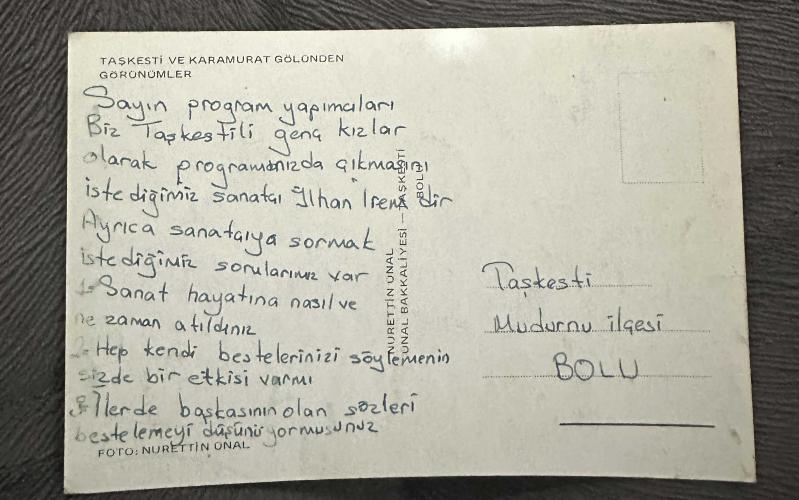 TAŞKESTİ VE KARAMURAT GÖLÜNDEN
GÖRÜNÜMLER
Sayın program yapımcıları
Biz Taşkestili genç kızlar
olarak programınızda çıkmasını
istediğimiz sanatçı "İlhan İrem" dir
Ayrıca sanatçıya sormak
istediğimiz sorularımız var
1- Sanat hayatına nasıl ve
ne zaman atıldınız
2- Hep kendi bestelerinizi söylemenin
sizde bir etkisi varmı
3- İlerde başkasının olan sözleri
bestelemeyi düşünüyormusunuz
FOTO: NURETTİN ÜNAL
NURETTİN ÜNAL
ÜNAL BAKKALİYESİ — TAŞKESTİ
BOLU
Taşkesti
Mudurnu ilçesi
BOLU